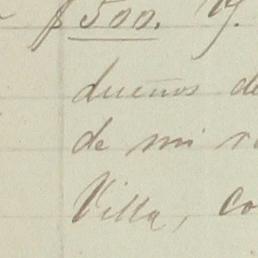 $500.
dueños de
de mi
Villa, co